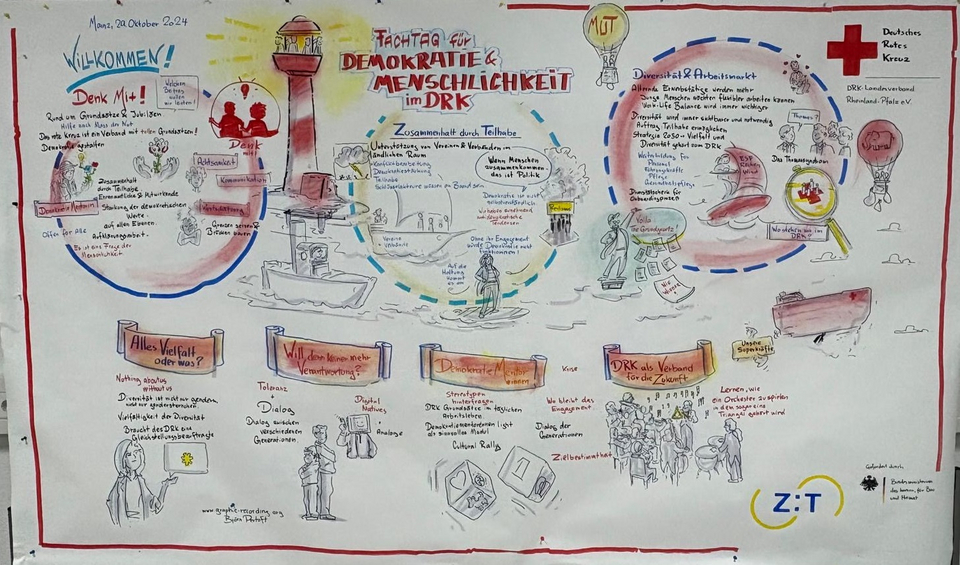 Mainz, 29. Oktober 2024
WILLKOMMEN!
FACHTAG für
DEMOKRATIE &
MENSCHLICHKEIT
im DRK
MUT
Deutsches
Rotes
Kreuz
DRK-Landesverband
Rheinland-Pfalz e.V.
Humor
DRK
Denk Mit!
Welchen
Beitrag
wollen wir
leisten?
Rund um Grundsätze & Jubiläen
Hilfe nach Mass der Not
Das rote Kreuz ist ein Verband mit tollen Grundsätzen!
Demokratie gestalten
Denk
mit!
Achtsamkeit
Kommunikation
Zusammenhalt
durch Teilhabe
Ehrenamtliche & Mitwirkende
Stärkung der demokratischen
Werte
auf allen Ebenen.
Aufklärungsarbeit.
Offen für Alle
Es ist eine Frage der
Menschlichkeit
Grenzen setzen &
Brücken bauen
Zusammenhalt durch Teilhabe
Unterstützung von Vereinen & Verbänden im
ländlichen Raum
Konfliktberatung
Demokratiestärkung
Teilhabe
Wenn Menschen
zusammenkommen,
das ist Politik
Demokratie ist nicht
selbstverständlich
Vereine
& Verbände
Ohne ihr Engagement
würde Demokratie nicht
Auf die
Haltung
kommt
es an
Diversität & Arbeitsmarkt
Ältere Erwerbstätige werden mehr
Junge Menschen möchten flexibler arbeiten können
Work-Life Balance wird immer wichtiger
Diversität wird immer sichtbarer und notwendig
Auftrag: Teilhabe ermöglichen
Strategie 2030 → Vielfalt und
Diversität gehört zum DRK
Weiterbildung für
Personal
Führungskräfte
Pflege
Themen?
Wo stehen wir im
DRK?
Alles Vielfalt
oder was?
Nothing about us
without us
Vielfältigkeit der Diversität
Braucht das DRK eine
Gleichstellungsbeauftragte
Will denn keiner mehr
Verantwortung?
Toleranz
+
Dialog
Dialog zwischen
verschiedenen
Generationen
Digital
Natives
+
Analoge
Stereotypen
hinterfragen
DRK Grundsätze im täglichen
Arbeitsleben
Demokratiementorinnen light
als sinnvolles Modul
Cultural Rally
Wo bleibt das
Engagement
Dialog der
Generationen
DRK als Verband
für die Zukunft
Unsere
Superkräfte
Lernen, wie
ein Orchester zu spielen
in dem sogar eine
Triangel gehört wird
www.graphic-recording.org
Z:T
Gefördert durch:
Bundesministerium
des Innern, für Bau
und Heimat